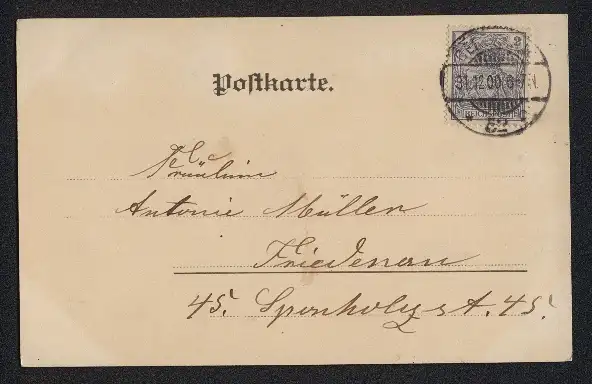 Postkarte.
3
31.12.00. 6-7N.
* 62
Fräulein
Antonie Müller
Friedenau
45. Sponholzst. 45.